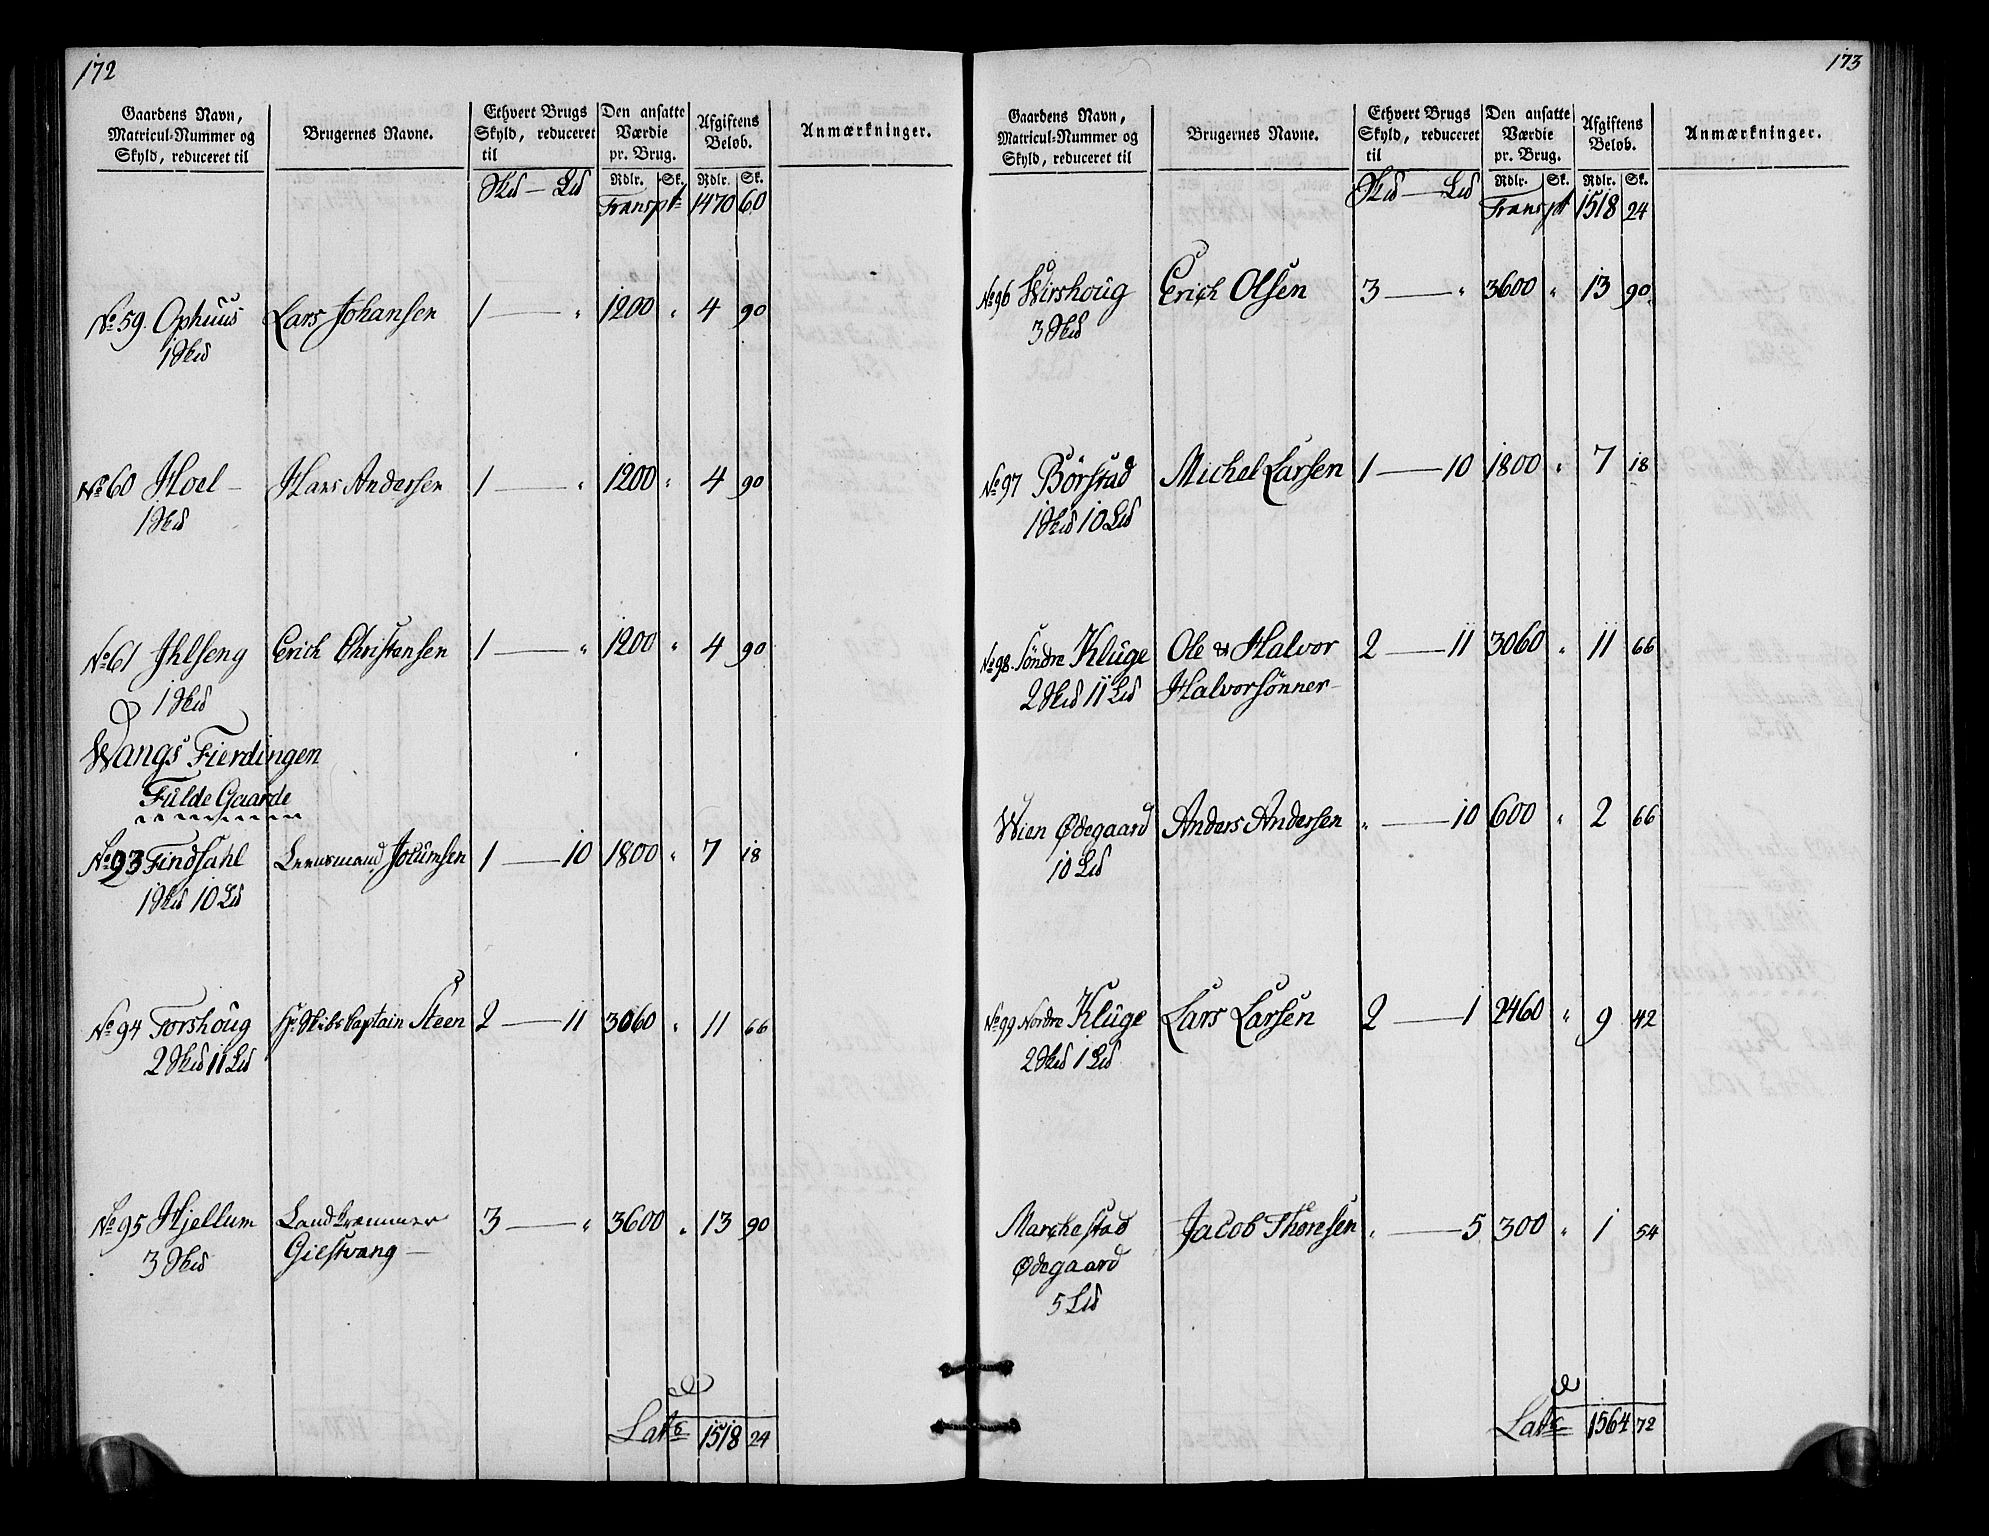 172
Gaardens Navn, Matricul-Nummer og Skyld, reduceret til | Brugernes Navne. | Ethvert Brugs Skyld, reduceret til | Den ansatte Værdie pr. Brug. | Afgiftens Beløb. | Anmærkninger.
Skd — Ld | Rdlr. | Sk. | Rdlr. | Sk.
Transpt 1470 60
No 59. Ophuus Lars Johansen 1 — " 1200 " 4 90
1 Skd
No 60 Hoel — Hans Andersen 1 — " 1200 " 4 90
1 Skd
No 61 Ihlseng Erich Christensen 1 — " 1200 " 4 90
1 Skd
Wangs Fierdingen
Fulde Gaarde
No 93 Findsahl Leensmand Jorumsen 1 — 10 1800 " 7 18
1 Skd 10 Ld
No 94 Torshoug Hr Skibs Captain Steen 2 — 11 3060 " 11 66
2 Skd 11 Ld
No 95 Hjellum Landkræmmer 3 — " 3600 " 13 90
3 Skd Gielstvang —
Lats 1518 24
173
Gaardens Navn, Matricul-Nummer og Skyld, reduceret til | Brugernes Navne. | Ethvert Brugs Skyld, reduceret til | Den ansatte Værdie pr. Brug. | Afgiftens Beløb. | Anmærkninger.
Skd — Ld | Rdlr. | Sk. | Rdlr. | Sk.
Transpt 1518 24
No 96 Wirshoug Erich Olsen 3 — " 3600 " 13 90
3 Skd
No 97 Börstad Michel Larsen 1 — 10 1800 " 7 18
1 Skd 10 Ld
No 98. Söndre Kluge Ole & Halvor 2 — 11 3060 " 11 66
2 Skd 11 Ld Halvorsönner —
Wien Ødegaard Anders Andersen " — 10 600 " 2 66
10 Ld
No 99 Nordre Kluge Lars Larsen 2 — 1 2460 " 9 42
2 Skd 1 Ld
Marchestad Jacob Thoresen " — 5 300 " 1 54
Ødegaard
5 Ld
Lats 1564 72